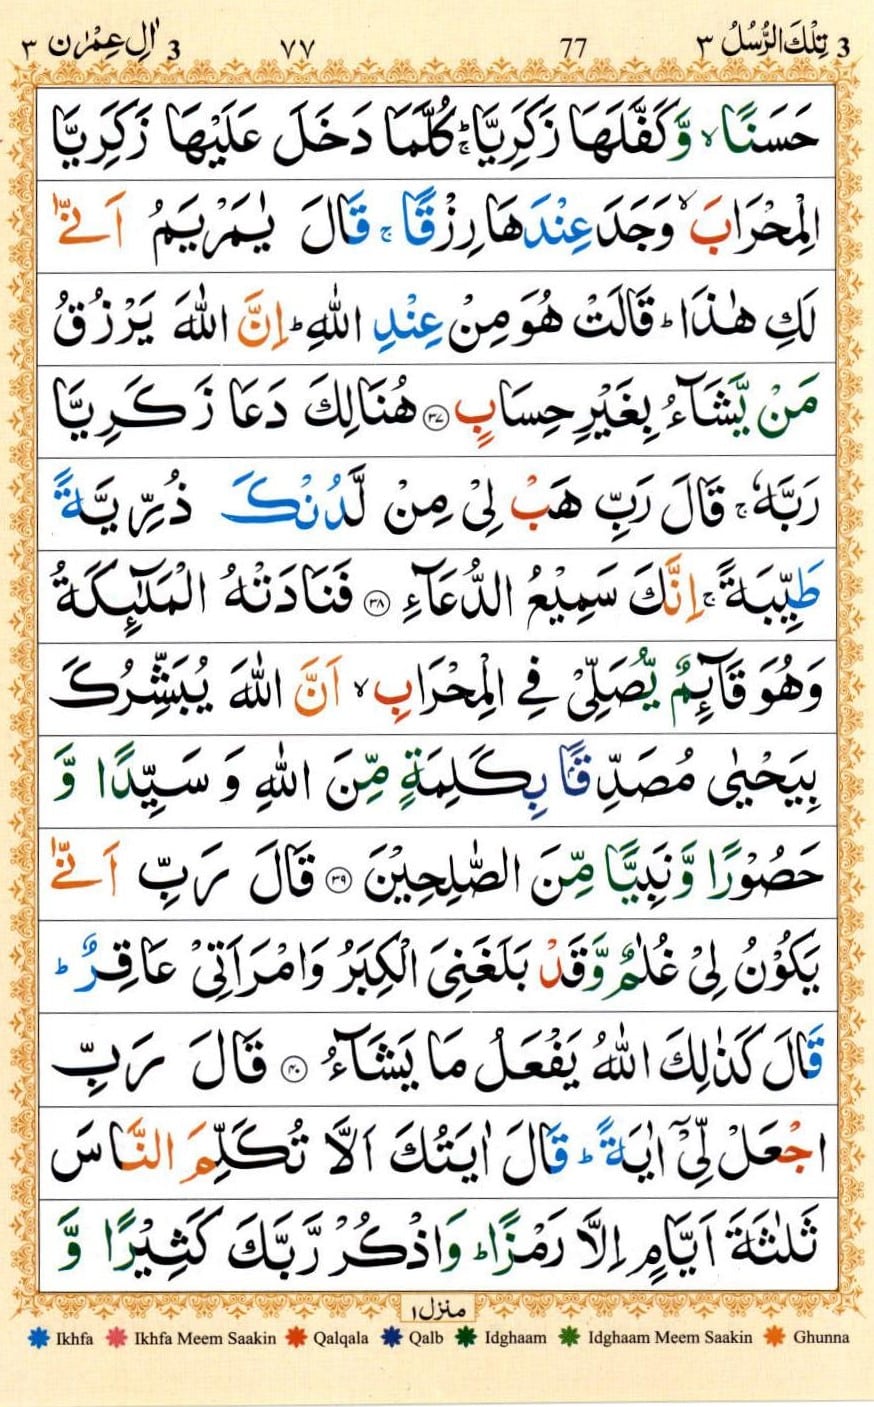 3 تِلْكَ الرُّسُلُ ٣ 77 ٧٧ 3 اٰلِ عِمْرٰن ٣
حَسَنًا ۙ وَّكَفَّلَهَا زَكَرِيَّا ؕۚ كُلَّمَا دَخَلَ عَلَيْهَا زَكَرِيَّا
الْمِحْرَابَ ۙ وَجَدَ عِنْدَهَا رِزْقًا ۚ قَالَ يٰمَرْيَمُ اَنّٰى
لَكِ هٰذَا ؕ قَالَتْ هُوَ مِنْ عِنْدِ اللّٰهِ ؕ اِنَّ اللّٰهَ يَرْزُقُ
مَنْ يَّشَآءُ بِغَيْرِ حِسَابٍ ﴿۳۷﴾ هُنَالِكَ دَعَا زَكَرِيَّا
رَبَّهٗ ۚ قَالَ رَبِّ هَبْ لِىْ مِنْ لَّدُنْكَ ذُرِّيَّةً
طَيِّبَةً ۚ اِنَّكَ سَمِيْعُ الدُّعَآءِ ﴿۳۸﴾ فَنَادَتْهُ الْمَلٰٓئِكَةُ
وَهُوَ قَآئِمٌ يُّصَلِّىْ فِى الْمِحْرَابِ ۙ اَنَّ اللّٰهَ يُبَشِّرُكَ
بِيَحْيٰى مُصَدِّقًاۢ بِكَلِمَةٍ مِّنَ اللّٰهِ وَ سَيِّدًا وَّ
حَصُوْرًا وَّنَبِيًّا مِّنَ الصّٰلِحِيْنَ ﴿۳۹﴾ قَالَ رَبِّ اَنّٰى
يَكُوْنُ لِىْ غُلٰمٌ وَّقَدْ بَلَغَنِىَ الْكِبَرُ وَامْرَاَتِىْ عَاقِرٌ ؕ
قَالَ كَذٰلِكَ اللّٰهُ يَفْعَلُ مَا يَشَآءُ ﴿۴۰﴾ قَالَ رَبِّ
اجْعَلْ لِّىْٓ اٰيَةً ؕ قَالَ اٰيَتُكَ اَلَّا تُكَلِّمَ النَّاسَ
ثَلٰثَةَ اَيَّامٍ اِلَّا رَمْزًا ؕ وَاذْكُرْ رَّبَّكَ كَثِيْرًا وَّ
منزل ١
Ikhfa Ikhfa Meem Saakin Qalqala Qalb Idghaam Idghaam Meem Saakin Ghunna